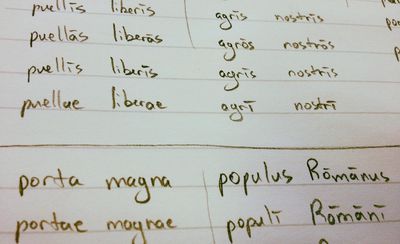 puellīs liberīs agrīs nostrīs
puellās liberās agrōs nostrōs
puellīs liberīs agrīs nostrīs
puellae liberae agrī nostrī
porta magna populus Rōmānus
portae magnae populī Rōmānī